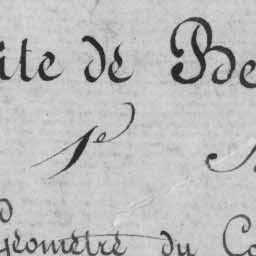 ite de Be
1e
géomètre du Co